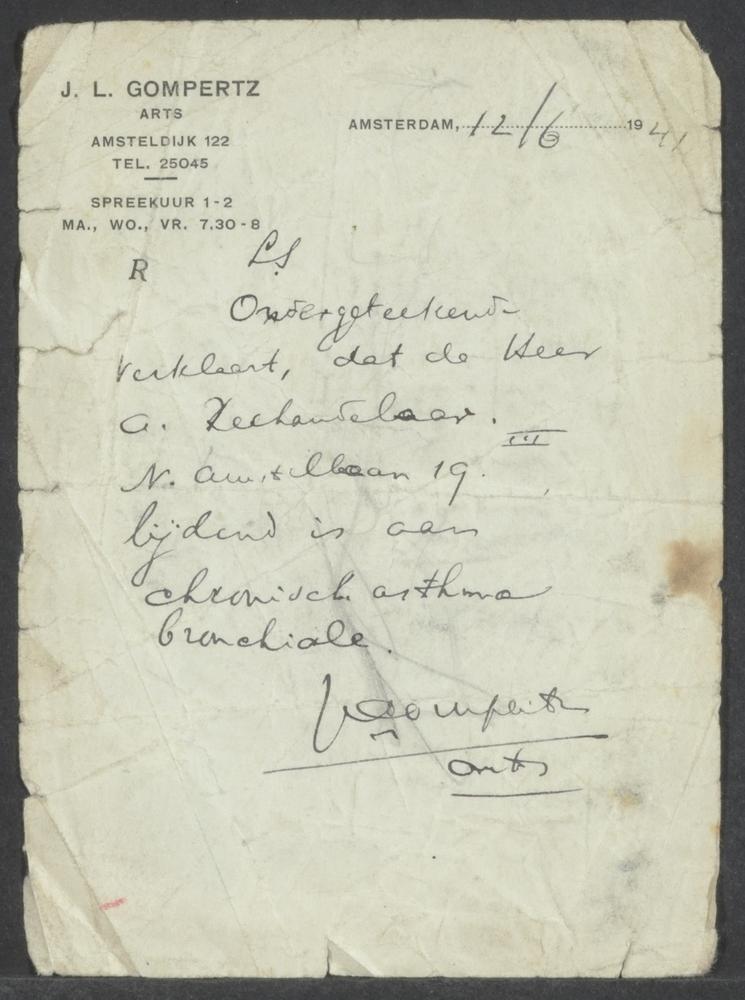 J. L. GOMPERTZ
ARTS
AMSTELDIJK 122
TEL. 25045
SPREEKUUR 1-2
MA., WO., VR. 7.30-8
AMSTERDAM, 12/6 1941
R
L.S
Ondergeteekend
verklaart, dat de Heer
A. Zeehandelaar.
N. Amstellaan 19. III
lijdend is aan
chronisch asthma
bronchiale.
JLGompertz
arts